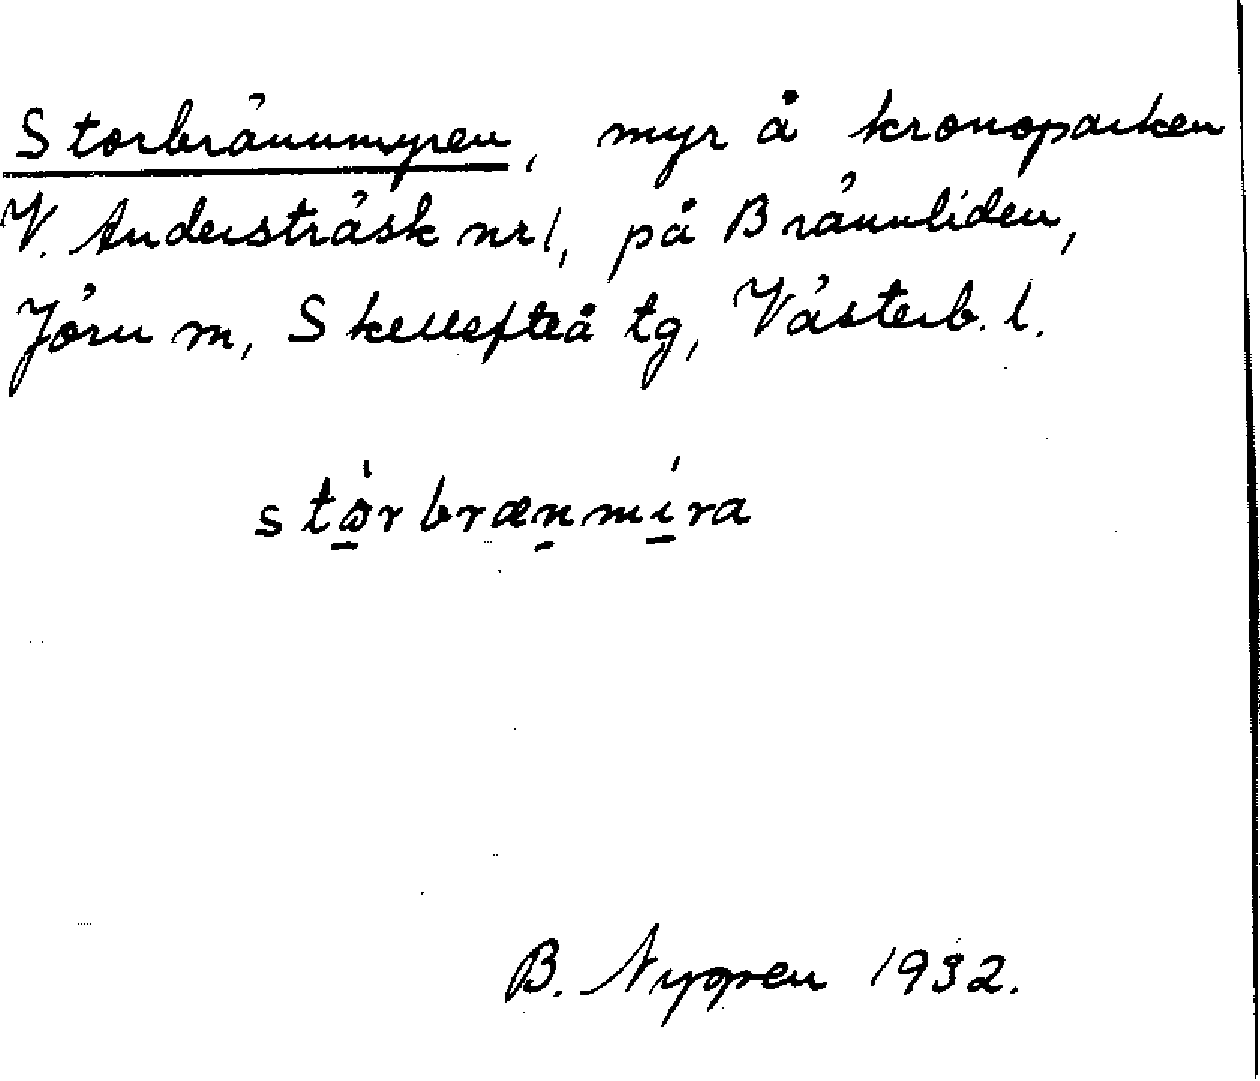 Storbrännmyren, myr å kronoparken
V. Andersträsk nr 1, på Brännliden,
Jörn m, Skellefteå tg, Västerb. l.
størbrænmira
B. Nygren 1932.